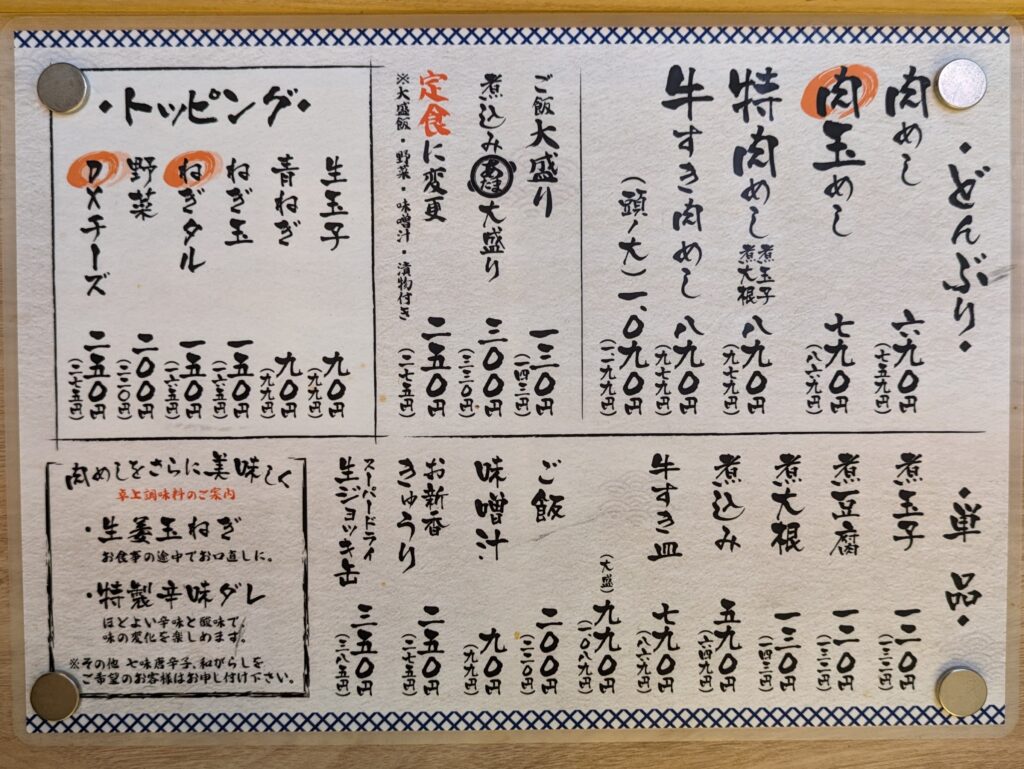 ・どんぶり・
肉めし 六九〇円
(七五九円)
肉玉めし 七九〇円
(八六九円)
特肉めし 煮玉子 煮大根 八九〇円
(九七九円)
牛すき肉めし 八九〇円
(九七九円)
(頭ノ大) 一、〇九〇円
(一、一九九円)
ご飯大盛り 一三〇円
(一四三円)
煮込みあたま大盛り 三〇〇円
(三三〇円)
定食に変更 二五〇円
(二七五円)
※大盛飯・野菜・味噌汁・漬物付き
・トッピング・
生玉子 九〇円
(九九円)
青ねぎ 九〇円
(九九円)
ねぎ玉 一五〇円
(一六五円)
ねぎタル 一五〇円
(一六五円)
野菜 二〇〇円
(二二〇円)
DXチーズ 二五〇円
(二七五円)
・単品・
煮玉子 一二〇円
煮豆腐 一二〇円
煮大根 一三〇円
(一四三円)
煮込み 五九〇円
(六四九円)
牛すき皿 七九〇円
(八六九円)
(大盛) 九九〇円
(一、〇八九円)
ご飯 二〇〇円
(二二〇円)
味噌汁 九〇円
(九九円)
お新香
きゅうり 二五〇円
(二七五円)
スーパードライ
生ジョッキ缶 三五〇円
(三八五円)
肉めしをさらに美味しく
卓上調味料のご案内
・生姜玉ねぎ
お食事の途中でお口直しに。
・特製辛味ダレ
ほどよい辛味と酸味で、
味の変化を楽しめます。
※その他 七味唐辛子、和がらしを
ご希望のお客様はお申し付け下さい。